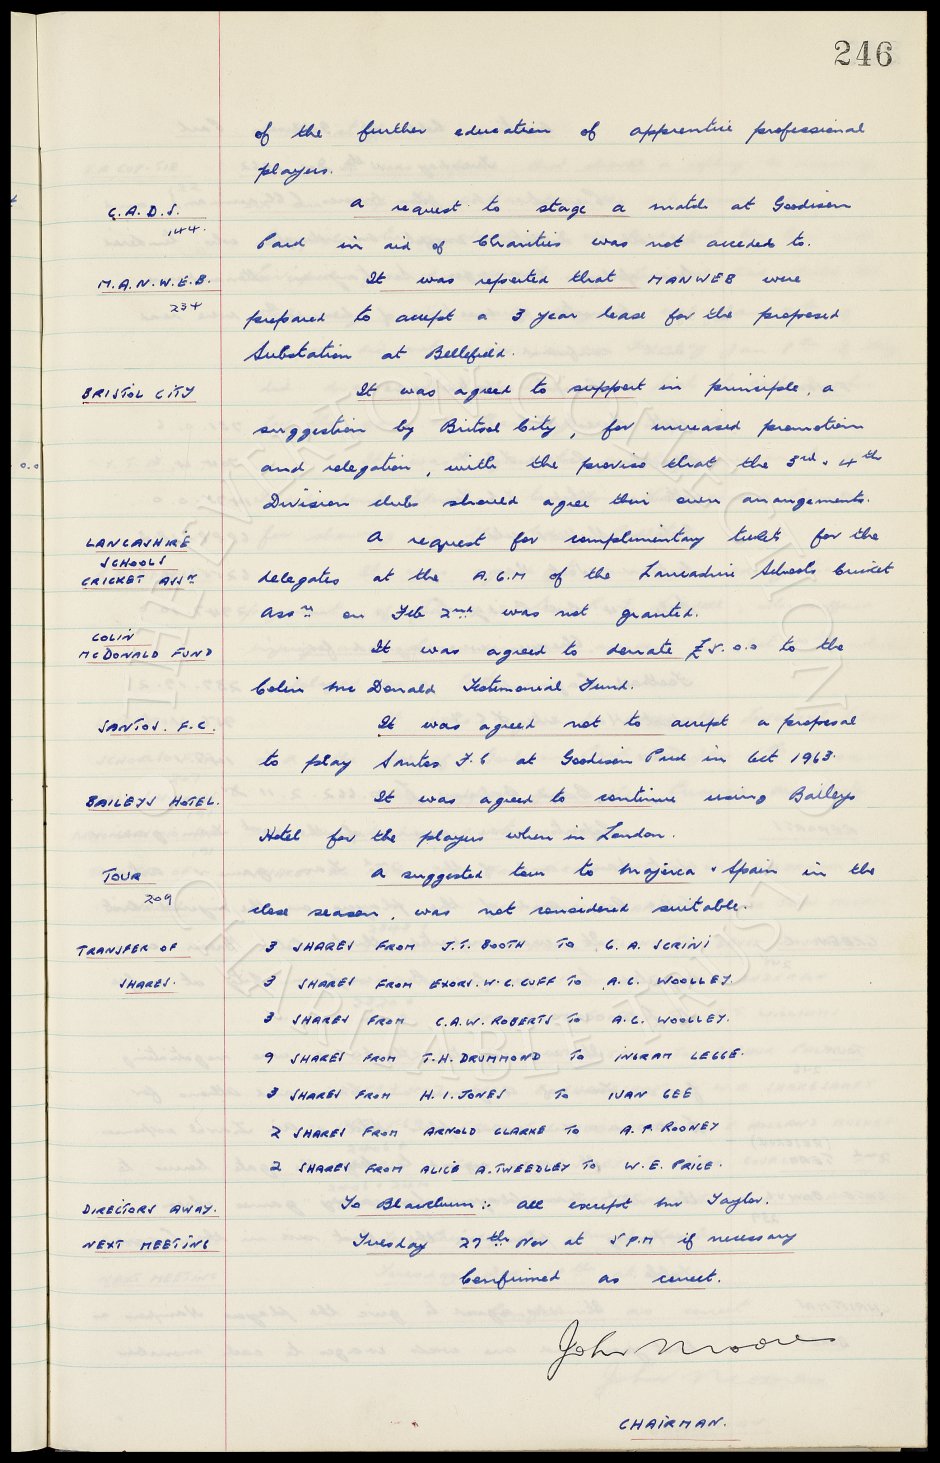 246
of the further education of apprentice professional
players.
C.A.D.S. A request to stage a match at Goodison
144. Park in aid of Charities was not acceded to.
M.A.N.W.E.B. It was reported that MANWEB were
234 prepared to accept a 3 year lease for the proposed
Substation at Bellefield.
BRISTOL CITY It was agreed to support in principle, a
suggestion by Bristol City, for increased promotion
and relegation, with the proviso that the 3rd & 4th
Division clubs should agree their own arrangements.
LANCASHIRE A request for complimentary tickets for the
SCHOOLS
CRICKET ASSN delegates at the A.G.M of the Lancashire Schools Cricket
Assn on Feb 2nd was not granted.
COLIN
MCDONALD FUND It was agreed to donate £5.0.0 to the
Colin McDonald Testimonial Fund.
SANTOS. F.C. It was agreed not to accept a proposal
to play Santos F.C at Goodison Park in Oct 1963.
BAILEYS HOTEL. It was agreed to continue using Baileys
Hotel for the players when in London.
TOUR A suggested tour to Majorca & Spain in the
209 close season, was not considered suitable.
TRANSFER OF 3 SHARES FROM J.T. BOOTH TO G.A. SCRINI
SHARES. 3 SHARES FROM EXORS. W.C. CUFF TO A.C. WOOLLEY.
3 SHARES FROM C.A.W. ROBERTS TO A.C. WOOLLEY.
9 SHARES FROM T.H. DRUMMOND TO INGRAM LEGGE.
3 SHARES FROM H.I. JONES TO IVAN GEE
2 SHARES FROM ARNOLD CLARKE TO A.P. ROONEY
2 SHARES FROM ALICE A. TWEEDLEY TO W.E. PRICE.
DIRECTORS AWAY. To Blackburn :- All except Mr Taylor.
NEXT MEETING Tuesday 27th Nov at 5 P.M if necessary
Confirmed as correct.
John Moores
CHAIRMAN.